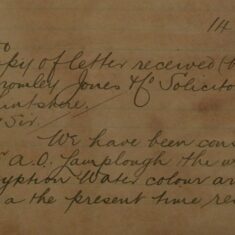 14
opy of letter received (
romley Jones & Co Solicito
untshire.
Sir.
We have been con
A.O. Lamplough the w
yption Water colour ar
a the present time, re